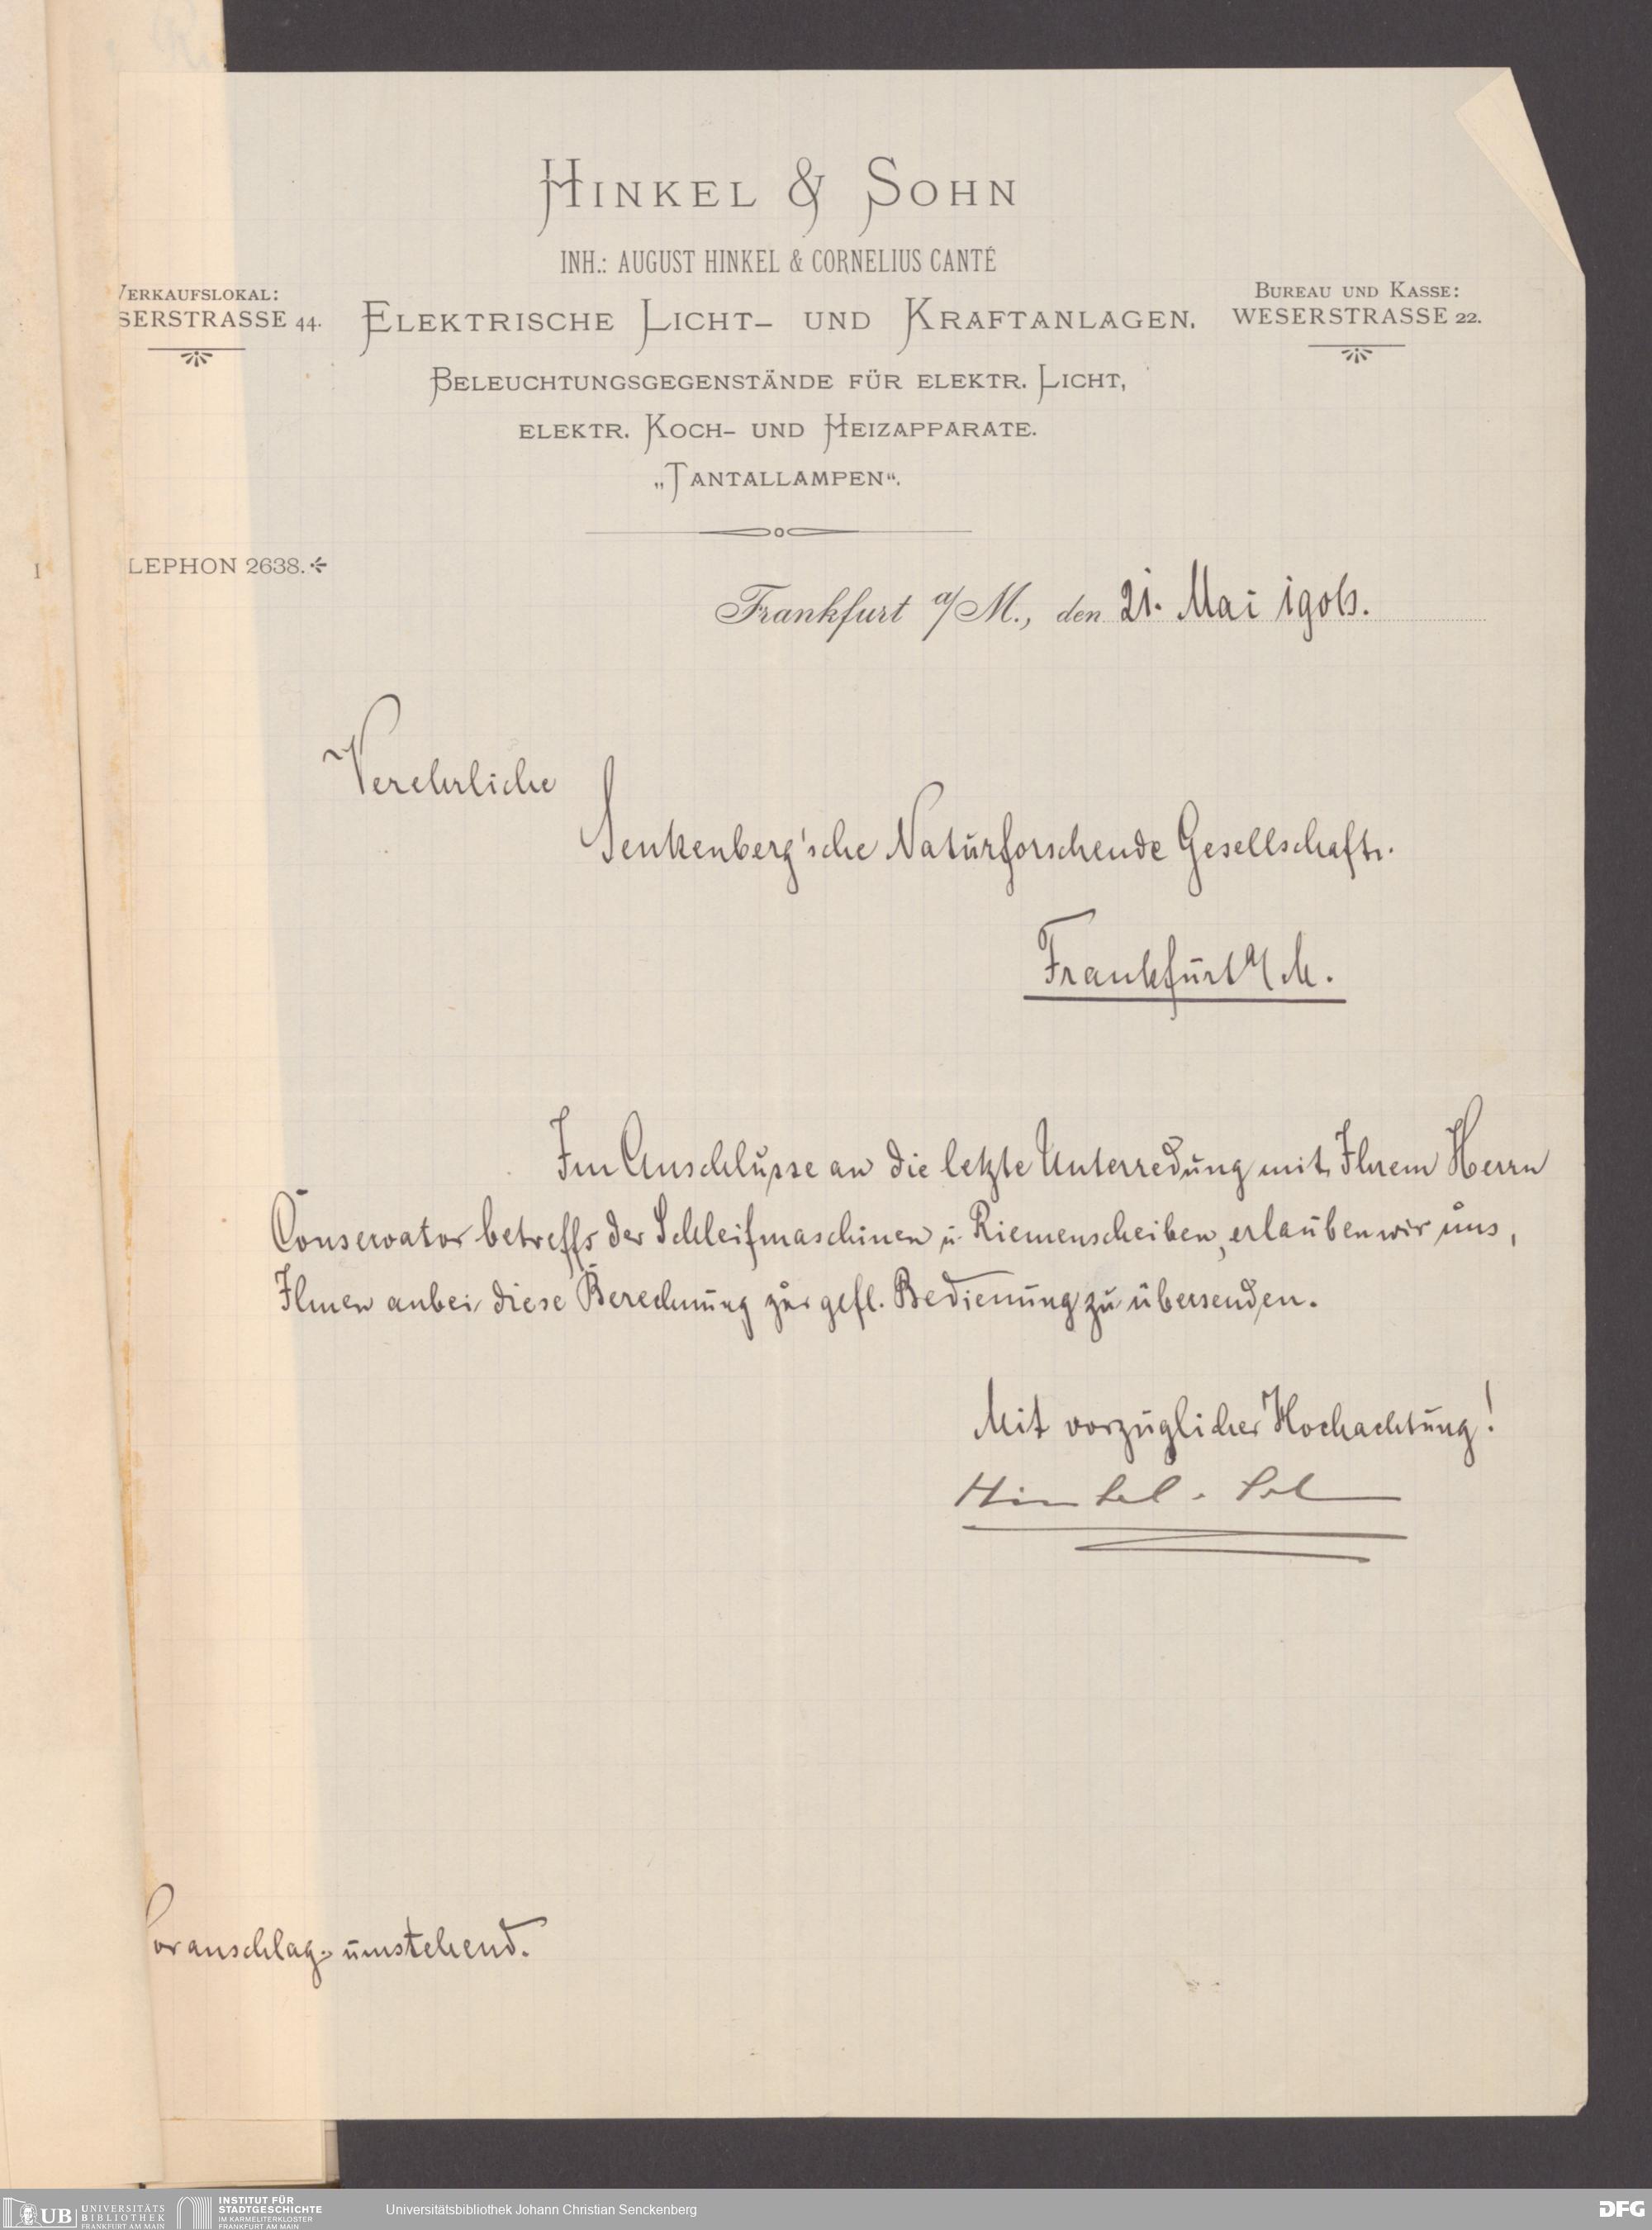 HINKEL & SOHN
INH.: AUGUST HINKEL & CORNELIUS CANTÉ
VERKAUFSLOKAL:
SERSTRASSE 44.
ELEKTRISCHE LICHT- UND KRAFTANLAGEN.
BUREAU UND KASSE:
WESERSTRASSE 22.
BELEUCHTUNGSGEGENSTÄNDE FÜR ELEKTR. LICHT,
ELEKTR. KOCH- UND HEIZAPPARATE.
„TANTALLAMPEN“.
LEPHON 2638.
Frankfurt a/M., den 21. Mai 1906.
Verehrliche
Senkenberg'sche Naturforschende Gesellschaft.
Frankfurt a/M.
Im Anschlusse an die letzte Unterredung mit Ihrem Herrn
Conservator betreffs der Schleifmaschinen u. Riemenscheiben, erlauben wir uns,
Ihnen anbei diese Berechnung zur gefl. Bedienung zu übersenden.
Mit vorzüglicher Hochachtung!
Hinkel & Sohn
Voranschlag umstehend.
1
UB UNIVERSITÄTS
BIBLIOTHEK
FRANKFURT AM MAIN
INSTITUT FÜR
STADTGESCHICHTE
IM KARMELITERKLOSTER
FRANKFURT AM MAIN
Universitätsbibliothek Johann Christian Senckenberg
DFG